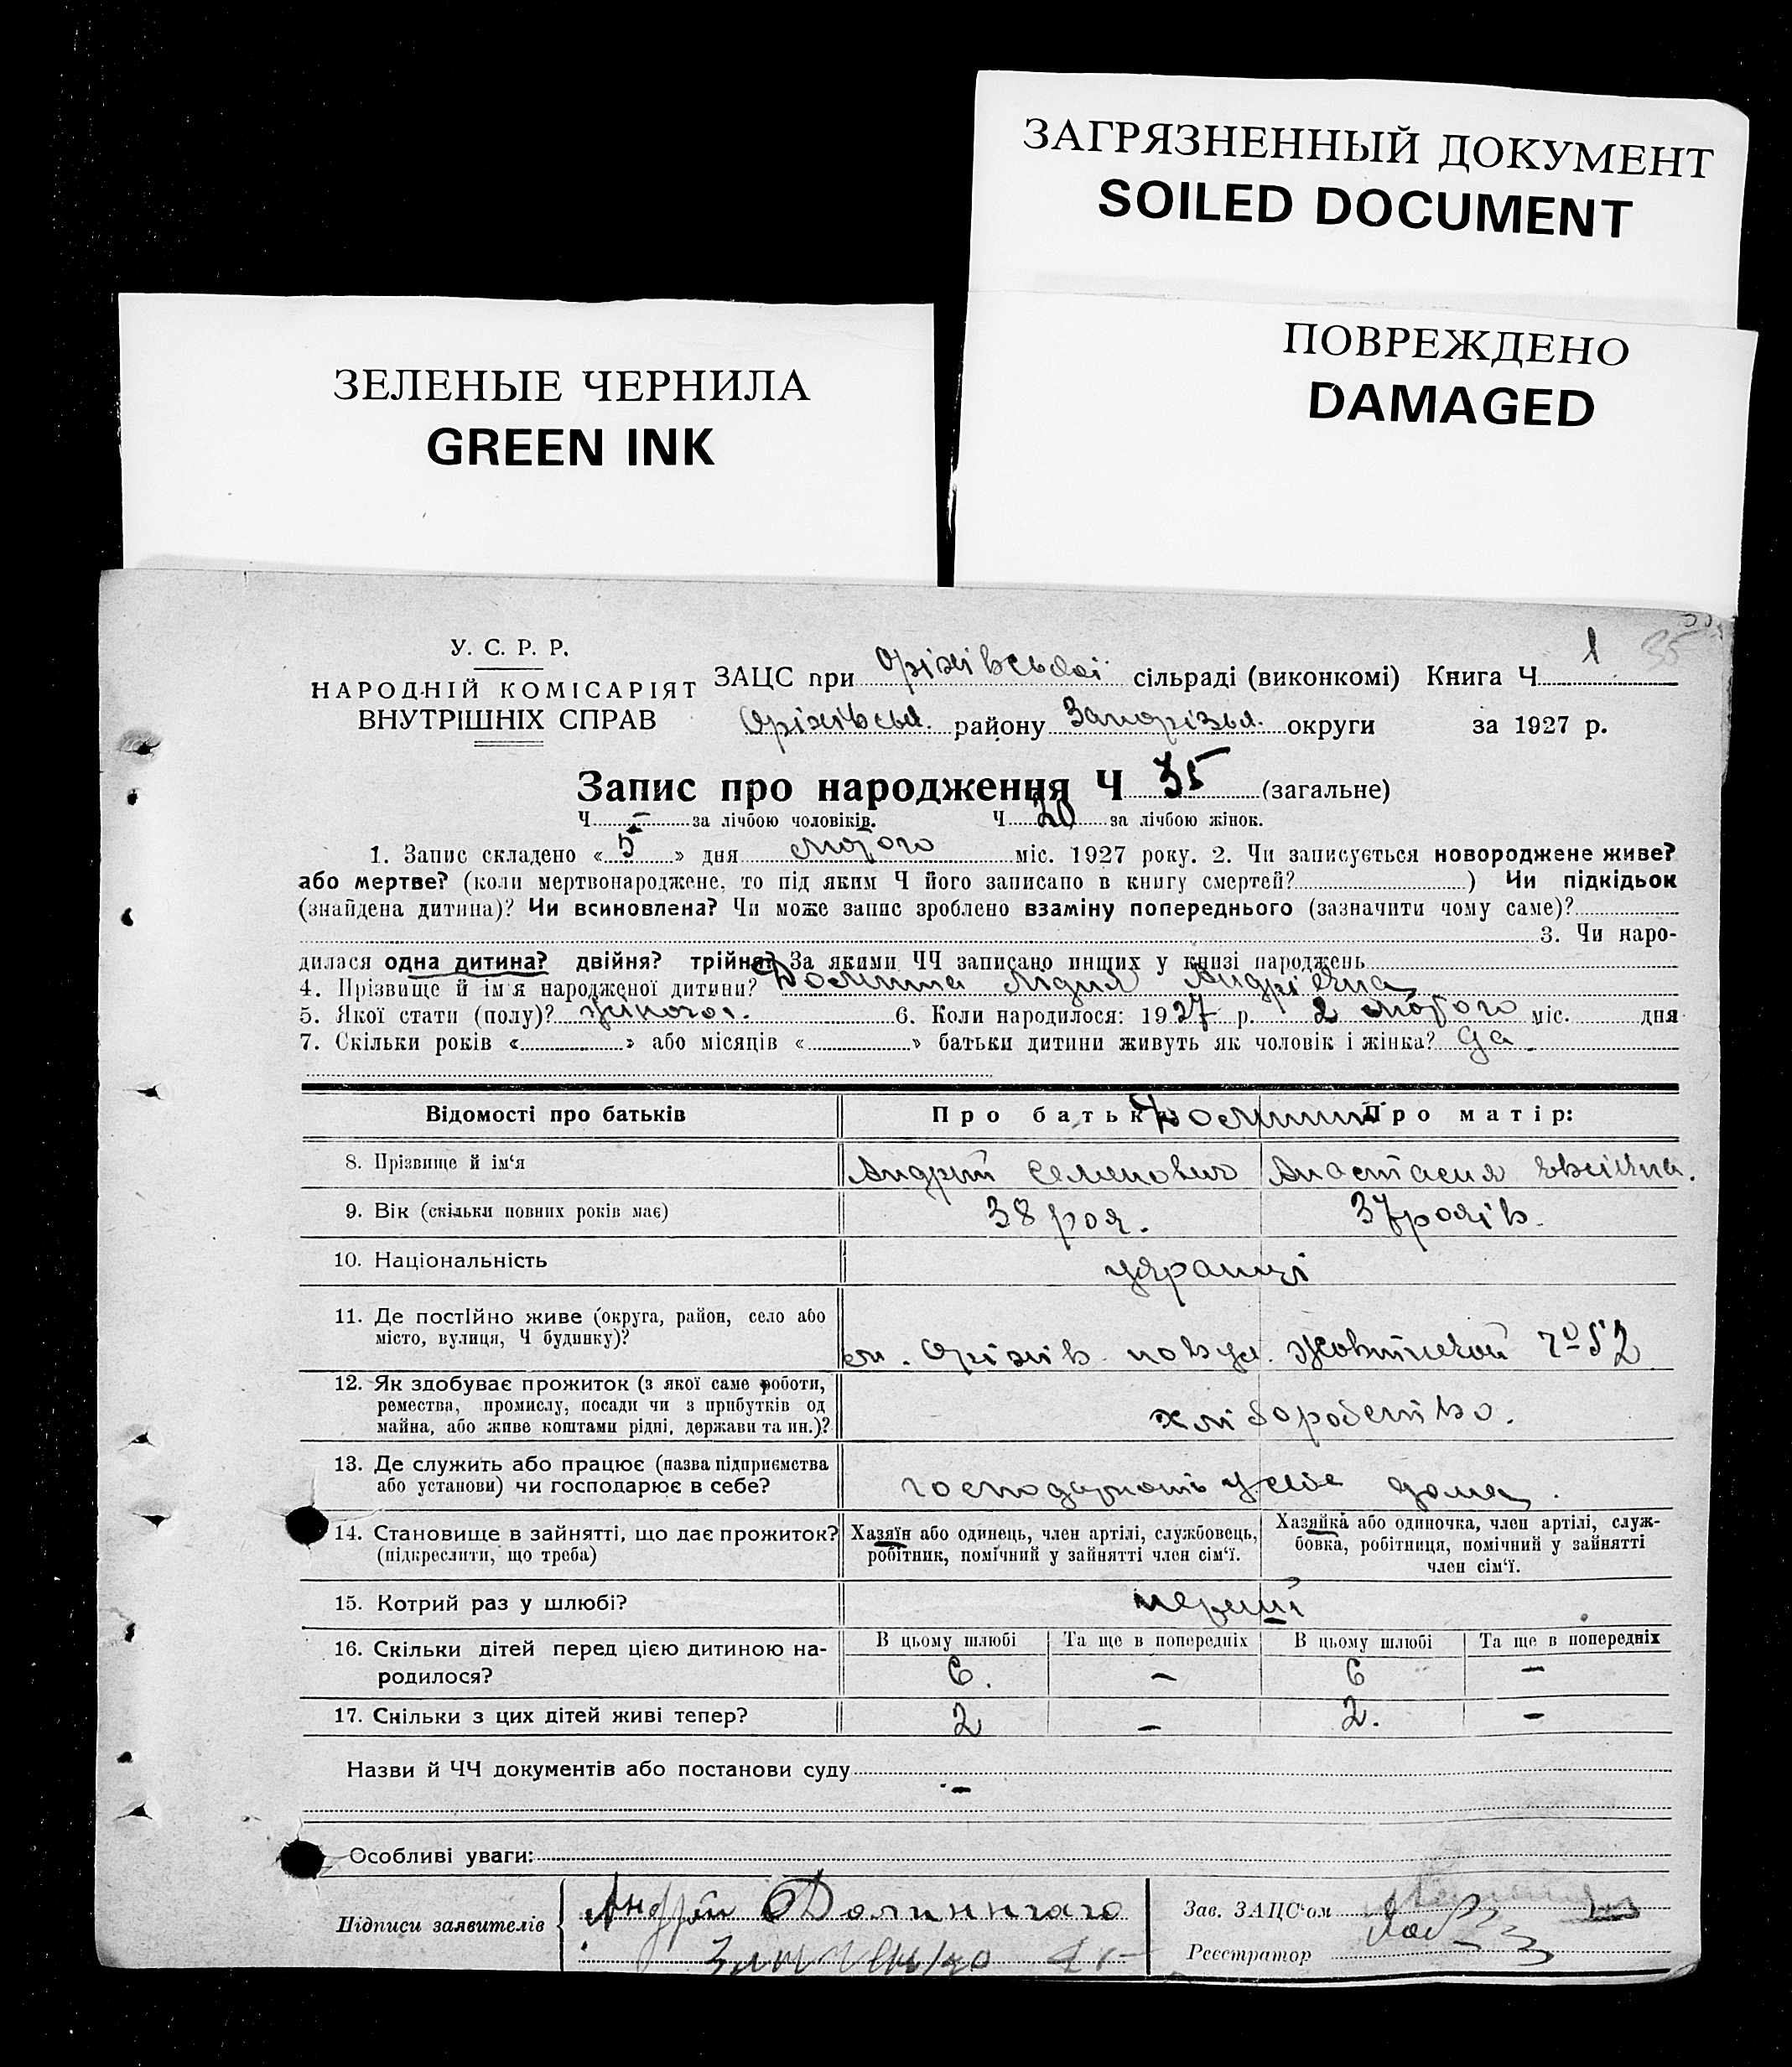 ЗАГРЯЗНЕННЫЙ ДОКУМЕНТ
SOILED DOCUMENT
ПОВРЕЖДЕНО
DAMAGED
ЗЕЛЕНЫЕ ЧЕРНИЛА
GREEN INK
У. С. Р. Р.
НАРОДНІЙ КОМІСАРІЯТ
ВНУТРІШНІХ СПРАВ
ЗАЦС при Оріхівській сільраді (виконкомі) Книга Ч 1 35
Оріхівськ. району Запорізьк. округи за 1927 р.
Запис про народження Ч 35 (загальне)
Ч — за лічбою чоловіків. Ч 20 за лічбою жінок.
1. Запис складено « 5 » дня лютого міс. 1927 року. 2. Чи записується новороджене живе?
або мертве? (коли мертвонароджене, то під яким Ч його записано в книгу смертей? ) Чи підкідьок
(знайдена дитина)? Чи всиновлена? Чи може запис зроблено взаміну попереднього (зазначити чому саме)?
3. Чи наро-
дилася одна дитина? двійня? трійня? За якими ЧЧ записано инших у книзі народжень
4. Прізвище й ім'я народженої дитини? Лідія Андріївна
5. Якої стати (полу)? жіночої. 6. Коли народилося: 1927 р. 2 лютого міс. дня
7. Скільки років « » або місяців « » батьки дитини живуть як чоловік і жінка? да.
Відомості про батьків Про батька Про матір:
8. Прізвище й ім'я Андрій Семенович Анастасия
9. Вік (скільки повних років має) 38 рок. 37 років.
10. Національність українці
11. Де постійно живе (округа, район, село або
місто, вулиця, Ч будинку)? м. Оріхів по вул. Жовтневой № 52
12. Як здобуває прожиток (з якої саме роботи,
ремества, промислу, посади чи з прибутків од
майна, або живе коштами рідні, держави та ин.)? хліборобство.
13. Де служить або працює (назва підприємства
або установи) чи господарює в себе? господарюють у себе дома.
14. Становище в зайнятті, що дає прожиток? Хазяїн або одинець, член артілі, службовець, Хазяйка або одиночка, член артілі, служ-
(підкреслити, що треба) робітник, помічний у зайнятті член сім'ї. бовка, робітниця, помічний у зайнятті
член сім'ї.
15. Котрий раз у шлюбі? перший
16. Скільки дітей перед цією дитиною на- В цьому шлюбі Та ще в попередніх В цьому шлюбі Та ще в попередніх
родилося? 6. — 6 —
17. Скільки з цих дітей живі тепер? 2 — 2. —
Назви й ЧЧ документів або постанови суду —
Особливі уваги:
Підписи заявителів Андрій Зав. ЗАЦС'ом
Реєстратор